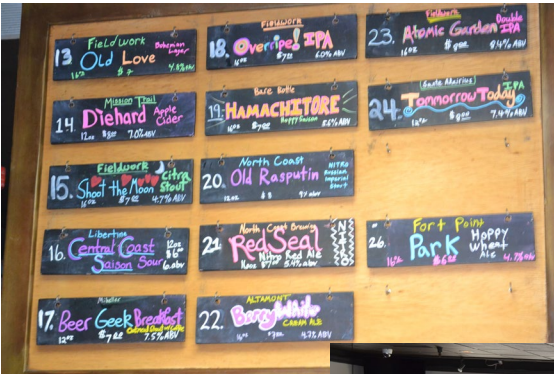 13 Fieldwork Bohemian Lager
Old Love
16oz $7 4.8% ABV
14. Mission Trail
Diehard Apple Cider
12oz $8.00 7.0% ABV
15. Fieldwork
Shoot the Moon Citra Stout
16oz $7.00 4.7% ABV
16. Libertine
Central Coast
Saison Sour
12oz
17. Mikeller
Beer Geek Breakfast
12oz $7.00 7.5% ABV
18. Fieldwork
Overripe! IPA
16oz 6.0% ABV
19. Bare Bottle
HAMACHITORE
16oz Hoppy Saison 5.6% ABV
20. North Coast
Old Rasputin
NITRO
Russian
Imperial
Stout
12oz $8 9% abv
21. North Coast Brewing
Red Seal
Nitro Red Ale
16oz 5.4% abv
NITRO
22. ALTAMONT
Berry White
CREAM ALE
23. Fieldwork
Atomic Garden Double IPA
16oz 8.4% ABV
24. Sante Adairius
Tomorrow Today IPA
12oz $8.00 7.4% ABV
26. Fort Point
Park Hoppy Wheat Ale
16oz $6.00 4.7% ABV